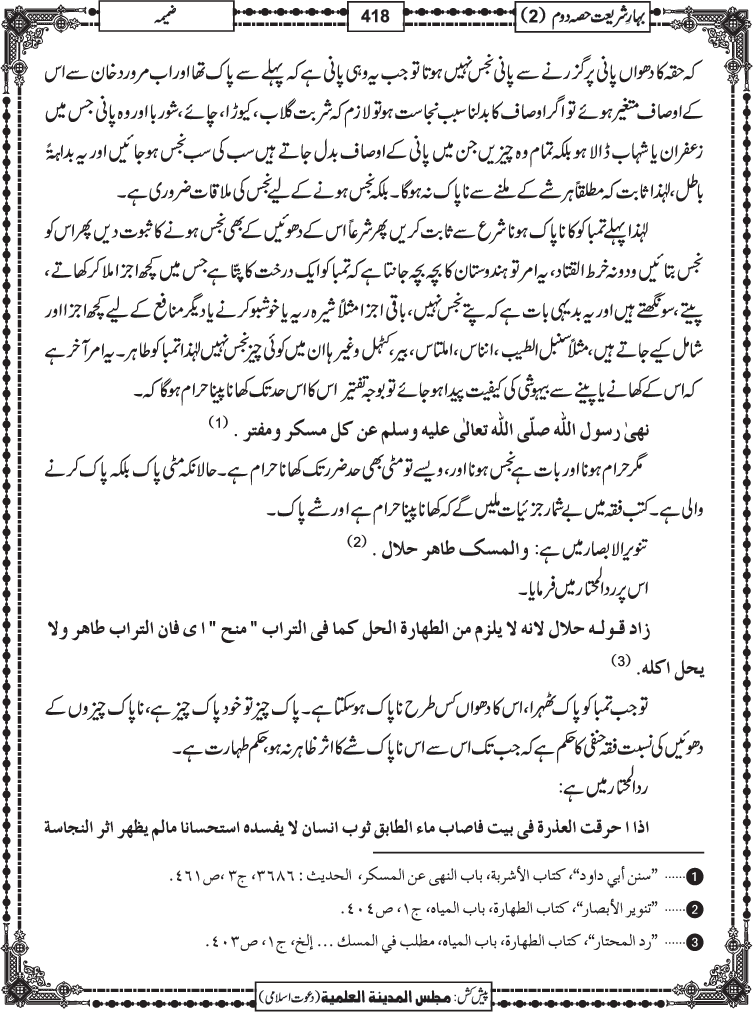 بہارِ شریعت حصہ دوم (2)
418
ضمیمہ
کہ حقہ کا دھواں پانی پر گزرنے سے پانی نجس نہیں ہوتا تو جب یہ وہی پانی ہے کہ پہلے سے پاک تھا اور اب مرور دخان سے اس
کے اوصاف متغیر ہوئے تو اگر اوصاف کا بدلنا سبب نجاست ہو تو لازم کہ شربت گلاب، کیوڑا، چائے، شوربا اور وہ پانی جس میں
زعفران یا شہاب ڈالا ہو بلکہ تمام وہ چیزیں جن میں پانی کے اوصاف بدل جاتے ہیں سب کی سب نجس ہو جائیں اور یہ بداہۃً
باطل، لہٰذا ثابت کہ مطلقاً ہر شے کے ملنے سے ناپاک نہ ہوگا۔ بلکہ نجس ہونے کے لیے نجس کی ملاقات ضروری ہے۔
لہٰذا پہلے تمباکو کا ناپاک ہونا شرع سے ثابت کریں پھر شرعاً اس کے دھوئیں کے بھی نجس ہونے کا ثبوت دیں پھر اس کو
نجس بتائیں ودونہ خرط القتاد، یہ امر تو ہندوستان کا بچہ بچہ جانتا ہے کہ تمباکو ایک درخت کا پتّا ہے جس میں کچھ اجزا ملا کر کھاتے،
پیتے، سونگھتے ہیں اور یہ بدیہی بات ہے کہ پتے نجس نہیں، باقی اجزا مثلاً شیرہ ریہ یا خوشبو کرنے یا دیگر منافع کے لیے کچھ اجزا اور
شامل کیے جاتے ہیں، مثلاً سنبل الطیب، انناس، املتاس، بیر، کٹہل وغیرہا ان میں کوئی چیز نجس نہیں لہٰذا تمباکو طاہر۔ یہ امر آخر ہے
کہ اس کے کھانے یا پینے سے بیہوشی کی کیفیت پیدا ہو جائے تو بوجہ تفتیر اس کا اس حد تک کھانا پینا حرام ہوگا کہ۔
نھیٰ رسول اللّٰہ صلّی اللّٰہ تعالٰی علیہ وسلم عن کل مسکر ومفتر . (1)
مگر حرام ہونا اور بات ہے نجس ہونا اور، ویسے تو مٹی بھی حد ضرر تک کھانا حرام ہے۔ حالانکہ مٹی پاک بلکہ پاک کرنے
والی ہے۔ کتب فقہ میں بے شمار جزئیات ملیں گے کہ کھانا پینا حرام ہے اور شے پاک۔
تنویر الابصار میں ہے: والمسک طاھر حلال . (2)
اس پر ردالمحتار میں فرمایا۔
زاد قولہ حلال لانہ لا یلزم من الطھارۃ الحل کما فی التراب " منح " ا ی فان التراب طاھر ولا
یحل اکلہ. (3)
تو جب تمباکو پاک ٹھہرا، اس کا دھواں کس طرح ناپاک ہو سکتا ہے۔ پاک چیز تو خود پاک چیز ہے، ناپاک چیزوں کے
دھوئیں کی نسبت فقہ حنفی کا حکم ہے کہ جب تک اس سے اس ناپاک شے کا اثر ظاہر نہ ہو، حکم طہارت ہے۔
ردالمحتار میں ہے:
اذا ا حرقت العذرۃ فی بیت فاصاب ماء الطابق ثوب انسان لا یفسدہ استحسانا مالم یظھر اثر النجاسۃ
1 ...... ”سنن أبي داود“، کتاب الأشربة، باب النهی عن المسکر، الحدیث : ٣٦٨٦، ج٣ ،ص٤٦١.
2 ...... ”تنویر الأبصار“، کتاب الطهارة، باب المیاه، ج١، ص٤٠٤.
3 ...... ”رد المحتار“، کتاب الطهارة، باب المیاه، مطلب في المسك ... إلخ، ج١، ص٤٠٣.
پیش کش: مجلس المدینة العلمیة (دعوت اسلامی)